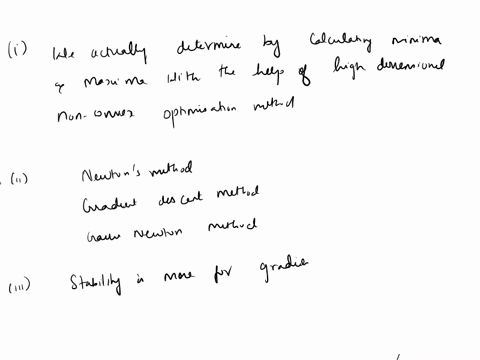 (i) We actually determine by Calculating minima
& Maxima With the help of high dimensional
non-convex optimisation method
(ii) Newton's method
Gradient descent method
Gauss Newton method
(iii) Stability is more for gradie